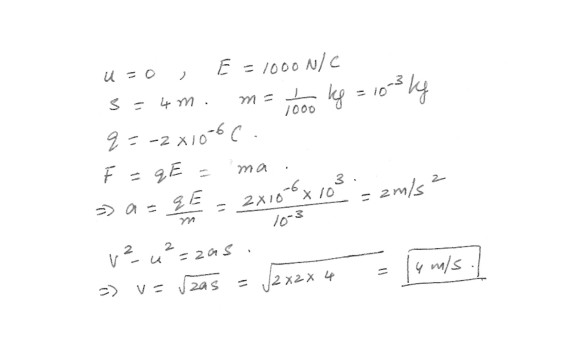 u = 0 , E = 1000 N/C
S = 4 m . m = 1/1000 kg = 10⁻³ kg
q = -2 x 10⁻⁶ C .
F = qE = ma .
⇒ a = qE/m = 2x10⁻⁶ x 10³/10⁻³ . = 2m/s²
v² - u² = 2as .
⇒ v = √2as = √2x2x 4 = 4 m/s .